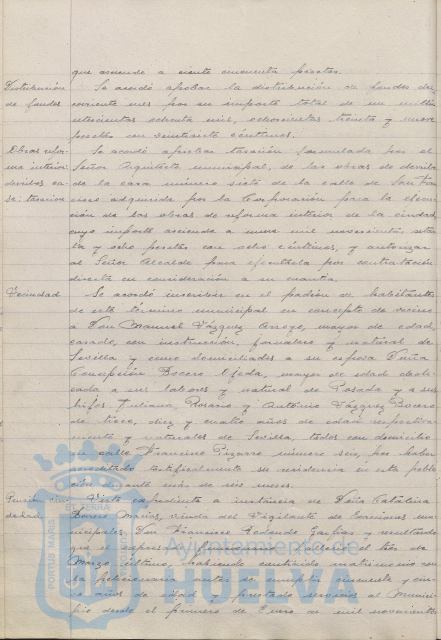 que asciende a ciento cincuenta pesetas.
Distribución de fondos
Se acordó aprobar la distribución de fondos del
corriente mes por su importe total de un millón
ochenta mil, ochocientas treinta y nueve
pesetas con céntimos.
Obras reforma interior
Se acordó aprobar tasación formulada por el
Señor Arquitecto municipal, de las obras de derribo
de la casa número siete de la calle de
adquirida por la Corporación para la ejecu-
ción de las obras de reforma interior de la ciudad,
cuyo importe asciende a nueve mil novecientas
ta y ocho pesetas con ocho céntimos, y autorizar
al Señor Alcalde para ejecutarla por contratación
directa en consideración a su cuantía.
Vecindad
Se acordó inscribir en el padrón de habitantes
de este término municipal en concepto de vecino
a Don Manuel Vázquez Arroyo, mayor de edad,
casado, con instrucción, jornalero y natural de
Sevilla y como domiciliados a su esposa Doña
Concepción Bocero Ojeda, mayor de edad dedi-
cada a sus labores y natural de Posada y a sus
hijos Juliana, Rosario y Antonio Vázquez Bocero
de trece, diez y cuatro años de edad respectiva-
mente y naturales de Sevilla, todos con domicilio
en calle Francisco Pizarro número seis, por haber
acreditado su residencia en esta pobla-
ción durante más de seis meses.
Visto expediente a instancia de Doña Catalina
Marios, viuda del Vigilante de
municipales Don Francisco Redondo y resultando
que el expresado falleció el tres de
Marzo último, habiendo contraído matrimonio con
la peticionaria antes de cumplir cincuenta y cin-
co años de edad y prestado servicios al Munici-
pio desde el primero de Enero de mil novecientos
PORTUS MARIS
Ayuntamiento de
HUELVA